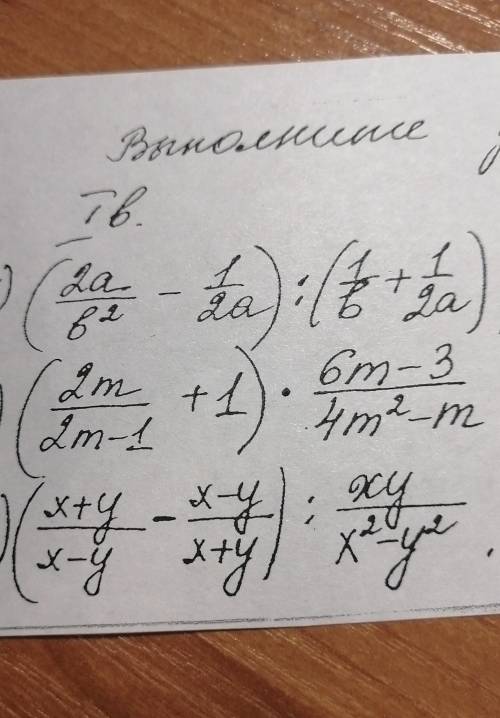 Выполните
I в.
) (2a/b² − 1/2a) : (1/b + 1/2a)
) (2m/2m−1 + 1) · 6m−3/4m²−m
) (x+y/x−y − x−y/x+y) : xy/x²−y².